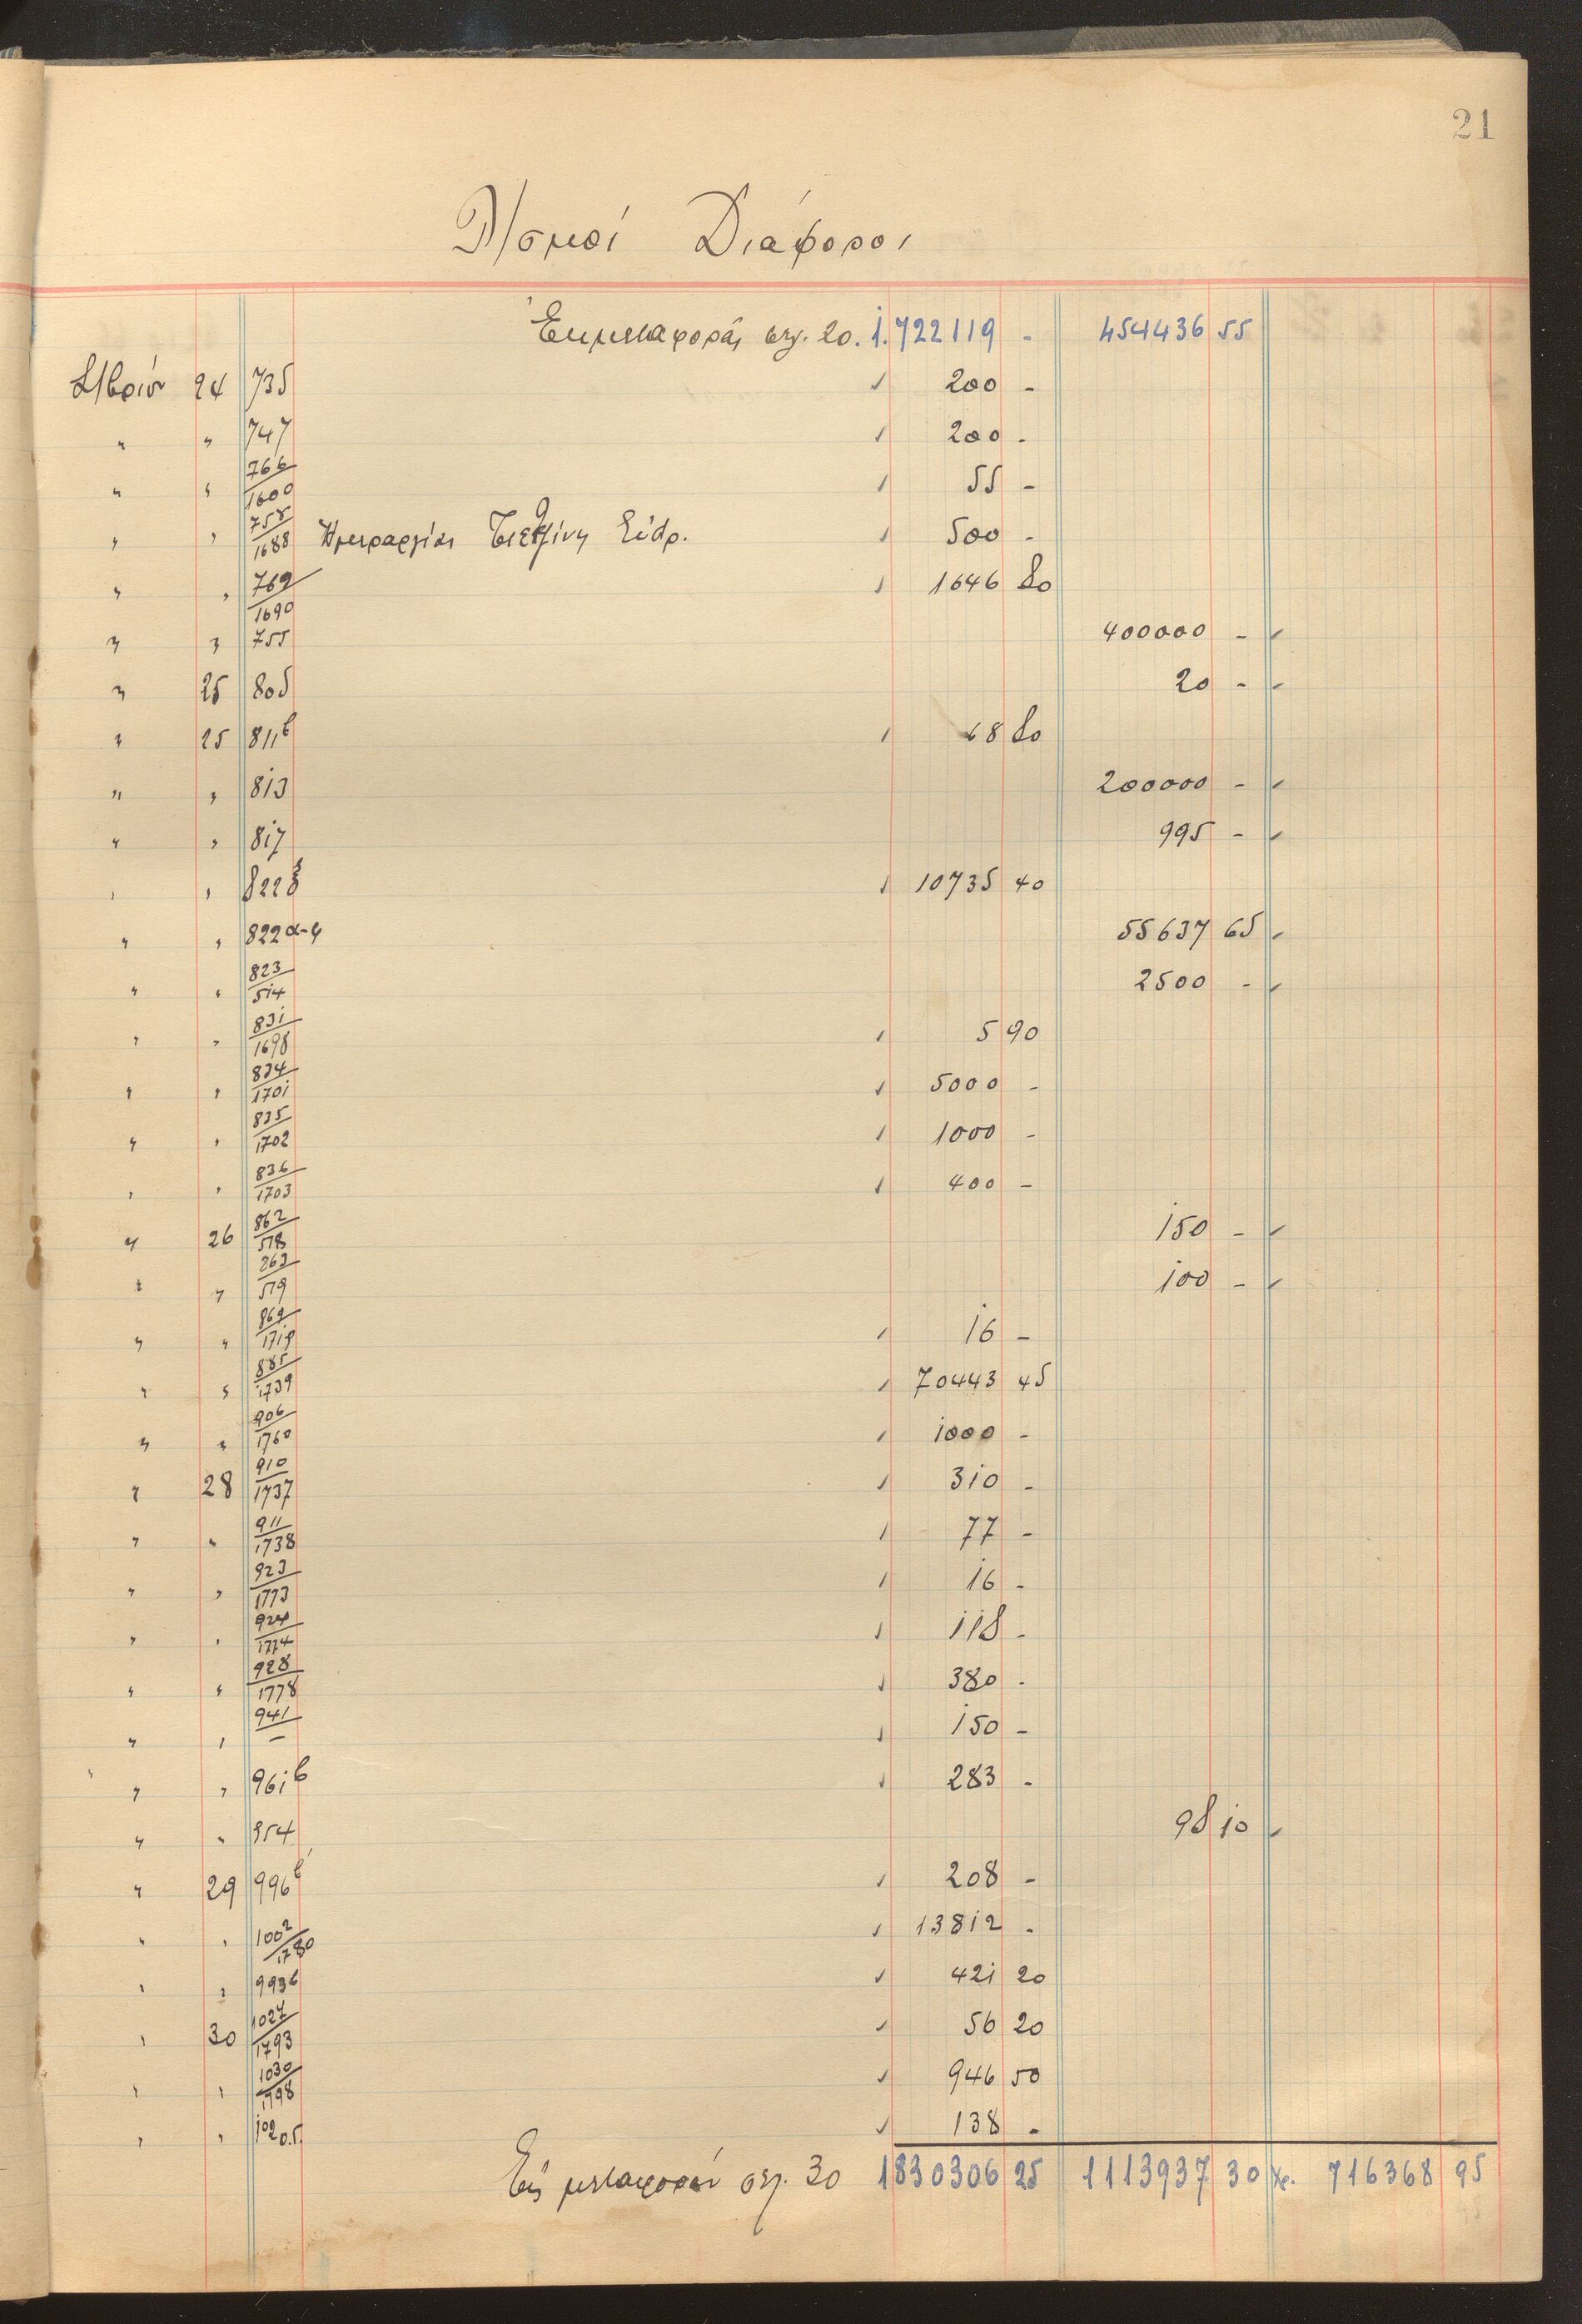 21
Λ/σμοί Διάφοροι
Ἐκ μεταφορᾶς σελ. 20. 1.722119 - 454436 55
24 735 200 -
" " 747 200 -
" " 766/1600 55 -
" " 758/1688 500 -
" " 769/1690 1646 80
" " 755 400000 -
" 25 805 20 -
" 25 811β 68 80
" " 813 200000 -
" " 817 995 -
" " 822 10735 40
" " 822α- 55637 65
" " 823/514 2500 -
" " 831/1698 5 90
" " 834/1701 5000 -
" " 835/1702 1000 -
" " 836/1703 400 -
" 26 862/518 150 -
" " 263/519 100 -
" " 869/1719 16 -
" " 885/1739 70443 45
" " 906/1760 1000 -
" 28 910/1737 310 -
" " 911/1738 77 -
" " 923/1773 16 -
" " 924/1774 118 -
" " 928/1778 380 -
" " 941/- 150 -
" " 961β 283 -
" " 954 98 10
" 29 996β 208 -
" " 1002/1780 13812 -
" " 993β 421 20
" 30 1027/1793 56 20
" " 1030/1798 946 50
" " 138 -
Εἰς μεταφοράν σελ. 30 1830306 25 1113937 30 Χρ. 716368 95